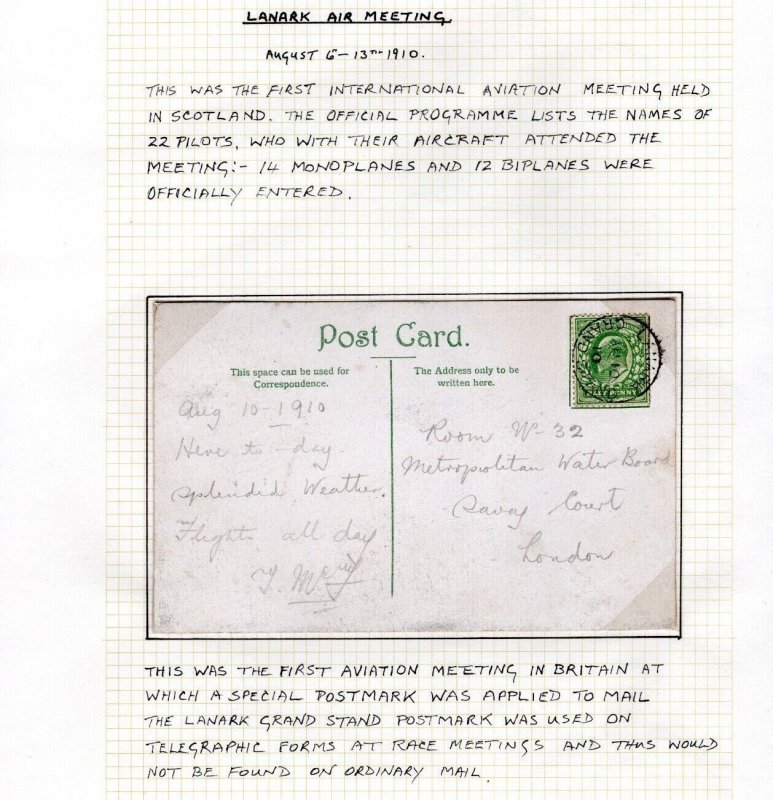 LANARK AIR MEETING
AUGUST 6 - 13TH 1910.
THIS WAS THE FIRST INTERNATIONAL AVIATION MEETING HELD
IN SCOTLAND. THE OFFICIAL PROGRAMME LISTS THE NAMES OF
22 PILOTS, WHO WITH THEIR AIRCRAFT ATTENDED THE
MEETING:- 14 MONOPLANES AND 12 BIPLANES WERE
OFFICIALLY ENTERED.
Post Card.
This space can be used for
Correspondence.
The Address only to be
written here.
Aug 10-1910
Here to-day.
Splendid Weather.
Flights all day
Room Nº 32
Metropolitan Water Board
Savoy Court
London
THIS WAS THE FIRST AVIATION MEETING IN BRITAIN AT
WHICH A SPECIAL POSTMARK WAS APPLIED TO MAIL
THE LANARK GRAND STAND POSTMARK WAS USED ON
TELEGRAPHIC FORMS AT RACE MEETINGS AND THUS WOULD
NOT BE FOUND ON ORDINARY MAIL.